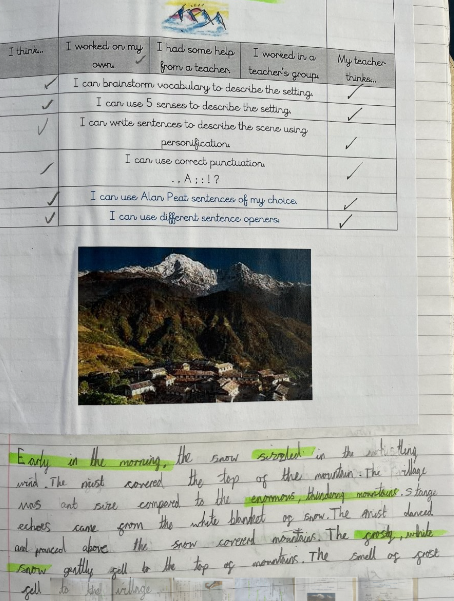 I think... I worked on my own. I had some help from a teacher. I worked in a teacher's group. My teacher thinks...
I can brainstorm vocabulary to describe the setting.
I can use 5 senses to describe the setting.
I can write sentences to describe the scene using personification.
I can use correct punctuation.
. , A ; : ! ?
I can use Alan Peat sentences of my choice.
I can use different sentence openers.
Early in the morning, the snow swirled in the
wind. The mist covered the top of the mountain. The village
was ant size compared to the enormous, thundering mountains. Strange
echoes came from the white blanket of snow. The mist danced
and pranced above the snow covered mountains. The frosty, white
snow gently fell to the top of mountains. The smell of frost
fell to the village